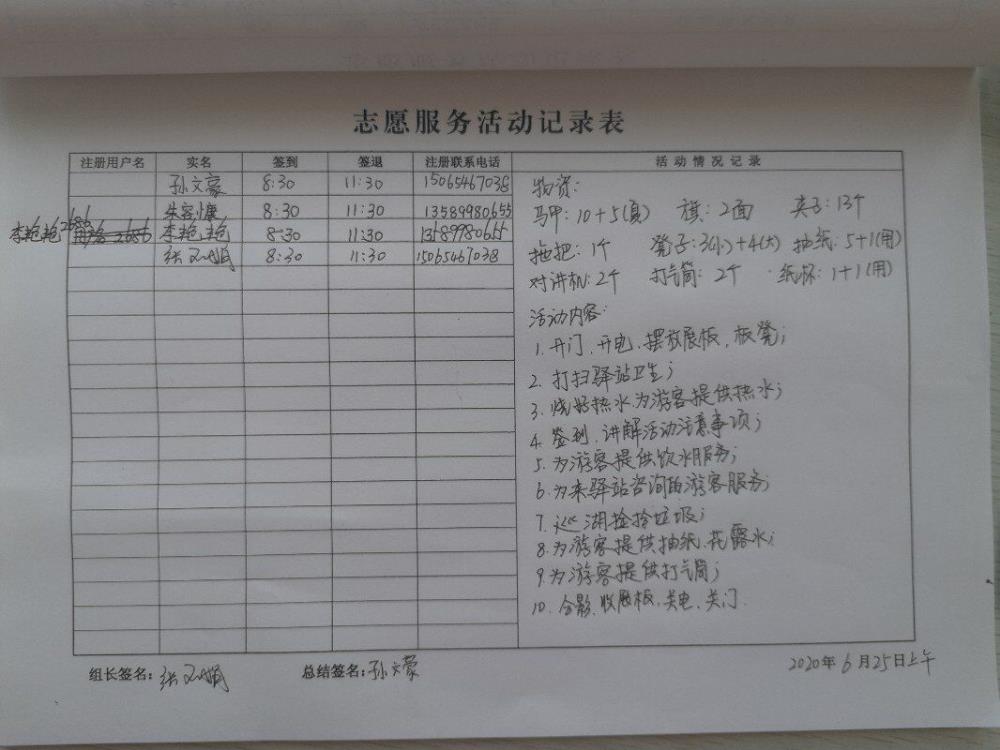 志愿服务活动记录表
注册用户名 实名 签到 签退 注册联系电话 活动情况记录
孙文豪 8:30 11:30 15065467038
朱容慷 8:30 11:30 13589980655
李艳艳2686 李艳艳 8:30 11:30 13589980655
张 娟 8:30 11:30 15065467038
物资:
马甲: 10+5(夏) 旗: 2面 夹子: 13个
拖把: 1个 凳子: 3(小)+4(大) 抽纸: 5+1(用)
对讲机: 2个 打气筒: 2个 纸杯: 1+1(用)
活动内容:
1. 开门、开电、摆放展板、板凳;
2. 打扫驿站卫生;
3. 烧好热水,为游客提供热水;
4. 签到、讲解活动注意事项;
5. 为游客提供饮水服务;
6. 为来驿站咨询的游客服务;
7. 巡湖捡拾垃圾;
8. 为游客提供抽纸、花露水;
9. 为游客提供打气筒;
10. 合影、收展板、关电、关门.
组长签名: 张 娟 总结签名: 孙文豪 2020年6月25日上午